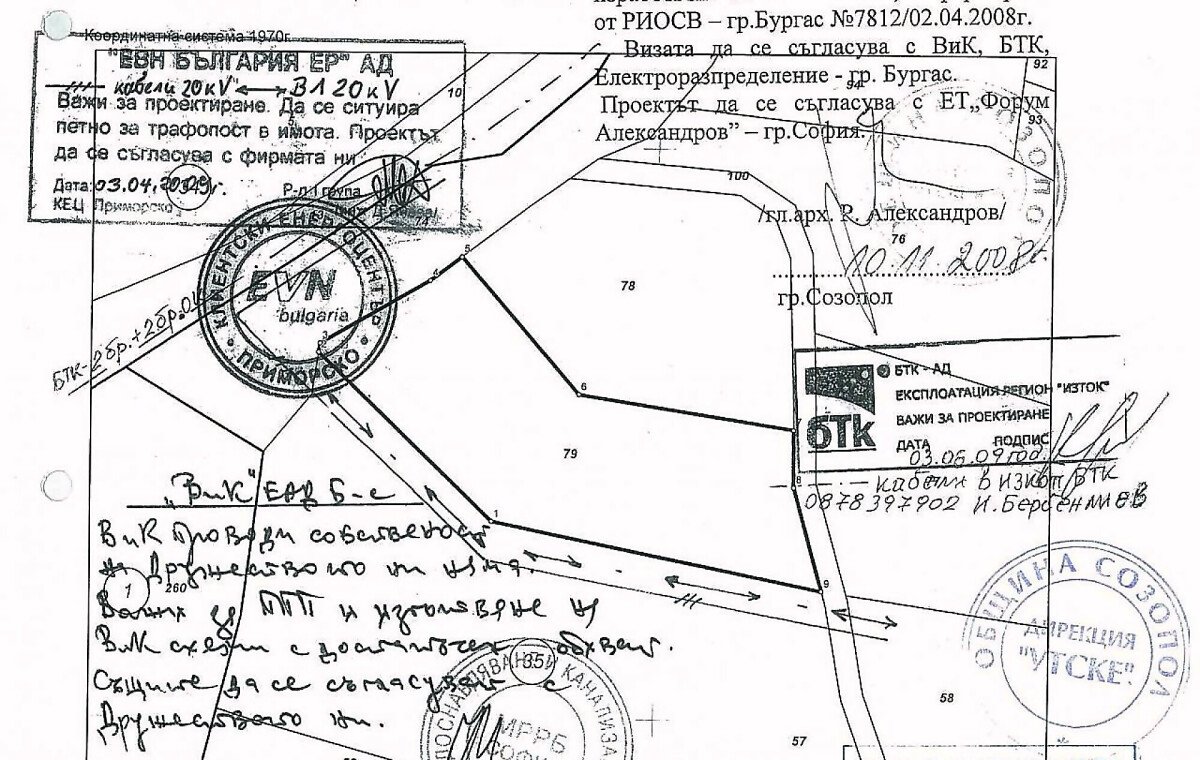 от РИОСВ – гр.Бургас №7812/02.04.2008г.
Визата да се съгласува с ВиК, БТК,
Електроразпределение - гр. Бургас.
Проектът да се съгласува с ЕТ„Форум
Александров” – гр.София.
/гл.арх. R. Александров/
10.11.2008г.
гр.Созопол
Координатна система 1970г.
"ЕВН БЪЛГАРИЯ ЕР" АД
кабели 20 kV ВЛ 20 kV
Важи за проектиране. Да се ситуира
петно за трафопост в имота. Проектът
да се съгласува с фирмата ни
Дата: 03.04.2009г.
Р-л група
КЕЦ Приморско
КЛИЕНТСКИ ЕНЕРГОЦЕНТЪР
EVN
bulgaria
• ПРИМОРСКО •
БТК-2бр.+2бр.
92
94
93
10
100
76
78
79
5
4
3
6
8
1
9
БТК - АД
ЕКСПЛОАТАЦИЯ РЕГИОН "ИЗТОК"
ВАЖИ ЗА ПРОЕКТИРАНЕ
ДАТА ПОДПИС
бТк
03.06.09
кабели в изкоп БТК
0878397902
"ВиК" ЕАД Б-с
ВиК проводи собственост
на Дружеството ни няма.
Важи за ПУП и изготвяне на
ВиК схеми с достатъчен обхват.
Същите да се съгласуват с
Дружеството ни.
1
260
35
МРРБ
СОФИЯ
ОБЩИНА СОЗОПОЛ
ДИРЕКЦИЯ
"УТСКЕ"
58
57